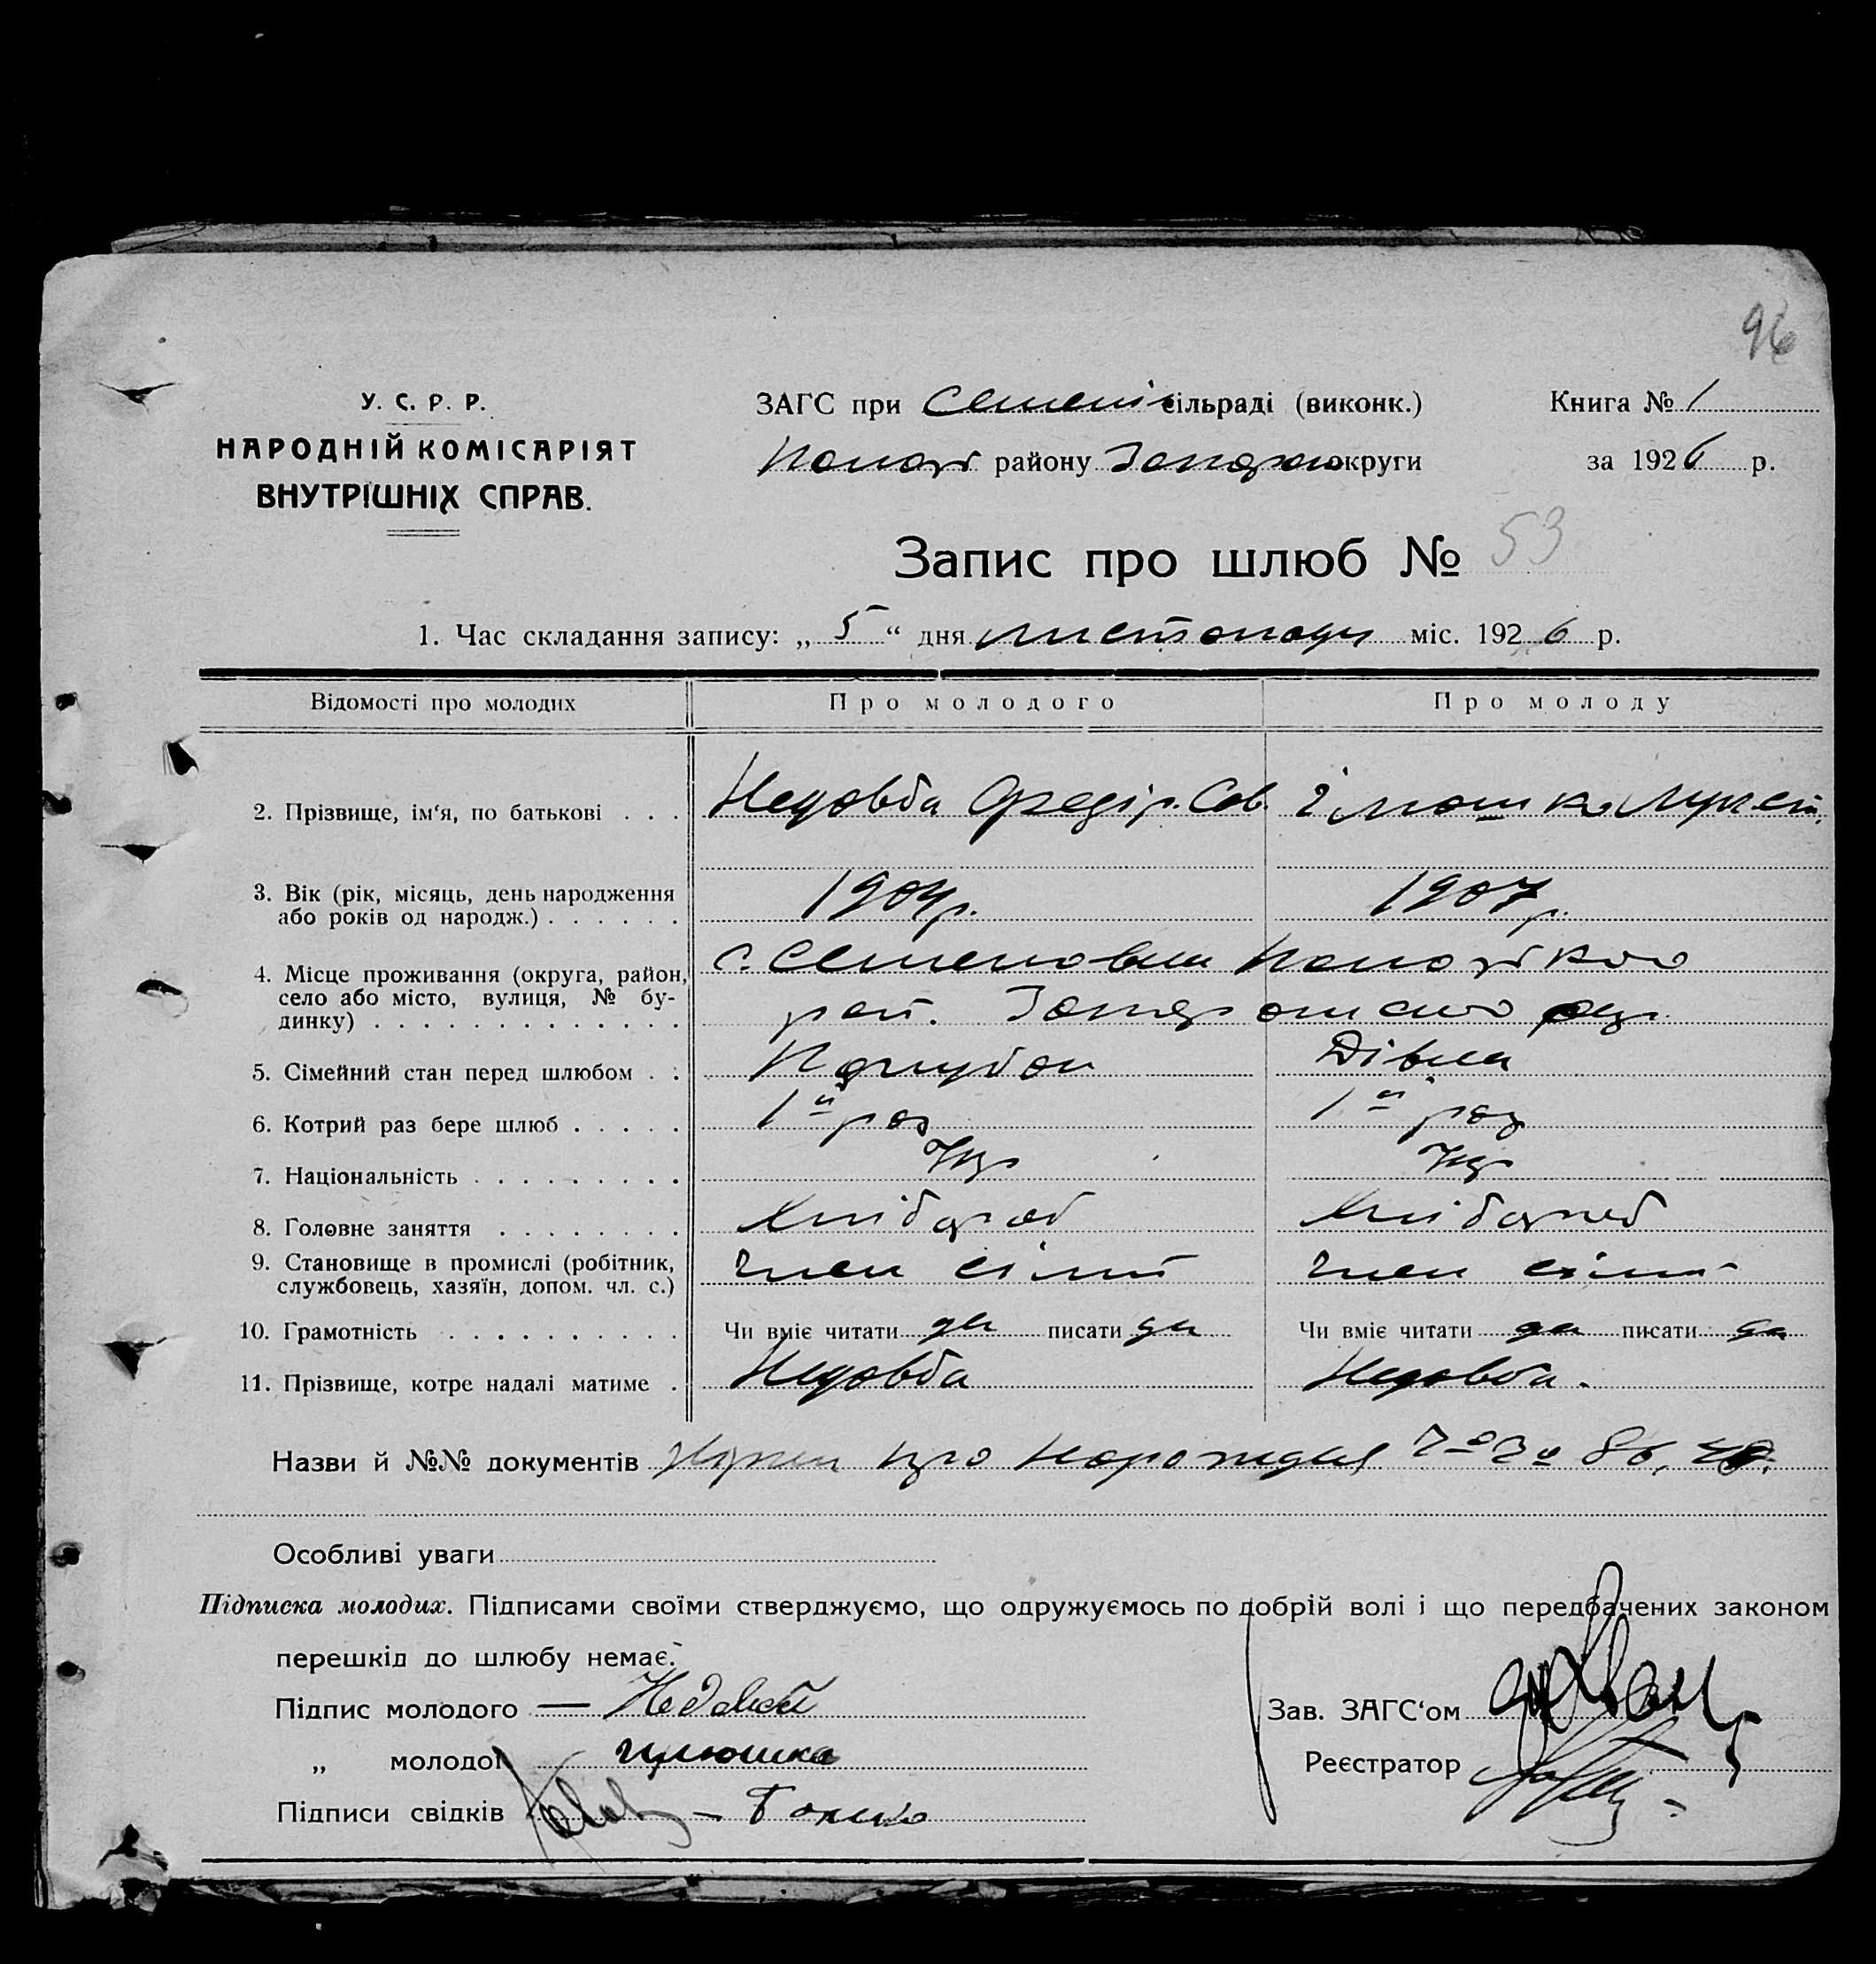 96
У. С. Р. Р.
НАРОДНІЙ КОМІСАРІЯТ
ВНУТРІШНІХ СПРАВ.
ЗАГС при Семені сільраді (виконк.)
району округи
Книга № 1
за 1926 р.
Запис про шлюб № 53
1. Час складання запису: „ 5 “ дня листопаду міс. 1926 р.
Відомості про молодих Про молодого Про молоду
2. Прізвище, ім‘я, по батькові . . . Недовба Федір. Сав.
3. Вік (рік, місяць, день народження
або років од народж.) . . . . . . 1904р. 1907р.
4. Місце проживання (округа, район,
село або місто, вулиця, № бу-
динку) . . . . . . . . . . . . . с. Семеновка
рай. окр.
5. Сімейний стан перед шлюбом . . Парубок Дівка
6. Котрий раз бере шлюб . . . . . 1й раз 1й раз
7. Національність . . . . . . . . . Укр Укр
8. Головне заняття . . . . . . . . Хлібороб Хлібороб
9. Становище в промислі (робітник,
службовець, хазяїн, допом. чл. с.) член сімї член сімї
10. Грамотність . . . . . . . . . . Чи вміє читати да писати да Чи вміє читати да писати да
11. Прізвище, котре надалі матиме . Недовба Недовба.
Назви й №№ документів про
Особливі уваги
Підписка молодих. Підписами своїми стверджуємо, що одружуємось по добрій волі і що передбачених законом
перешкід до шлюбу немає.
Підпис молодого —
„ молодої
Підписи свідків
Зав. ЗАГС‘ом
Реєстратор